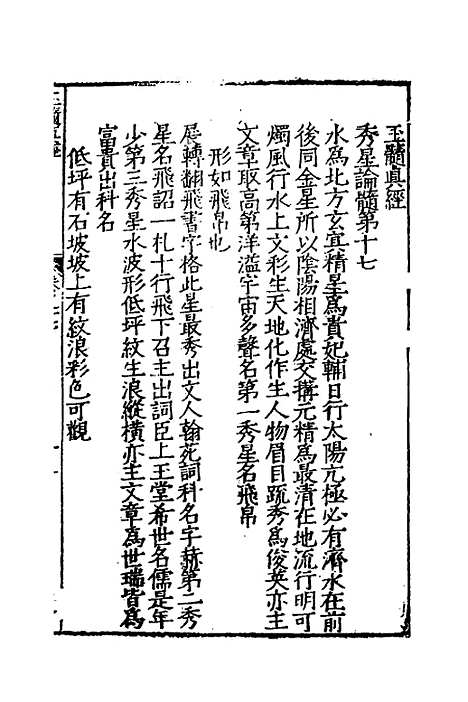 玉髓真經
秀星論髓第十七
水為北方玄宜精星為貴妃輔日行太陽亢極必有濟水在前
後同金星所以陰陽相濟處交搆元精為最清在地流行明可
燭風行水上文彩生天地化作生人物眉目疏秀為俊英亦主
文章取高第洋溢宇宙多聲名第一秀星名飛帛
形如飛帛也
展轉翻飛書字格此星最秀出文人翰苑詞科名字赫第二秀
星名飛詔一札十行飛下召主出詞臣上玉堂希世名儒是年
少第三秀星水波形低坪紋生浪縱橫亦主文章為世瑞皆為
富貴出科名
低坪有石坡坡上有紋浪彩色可觀